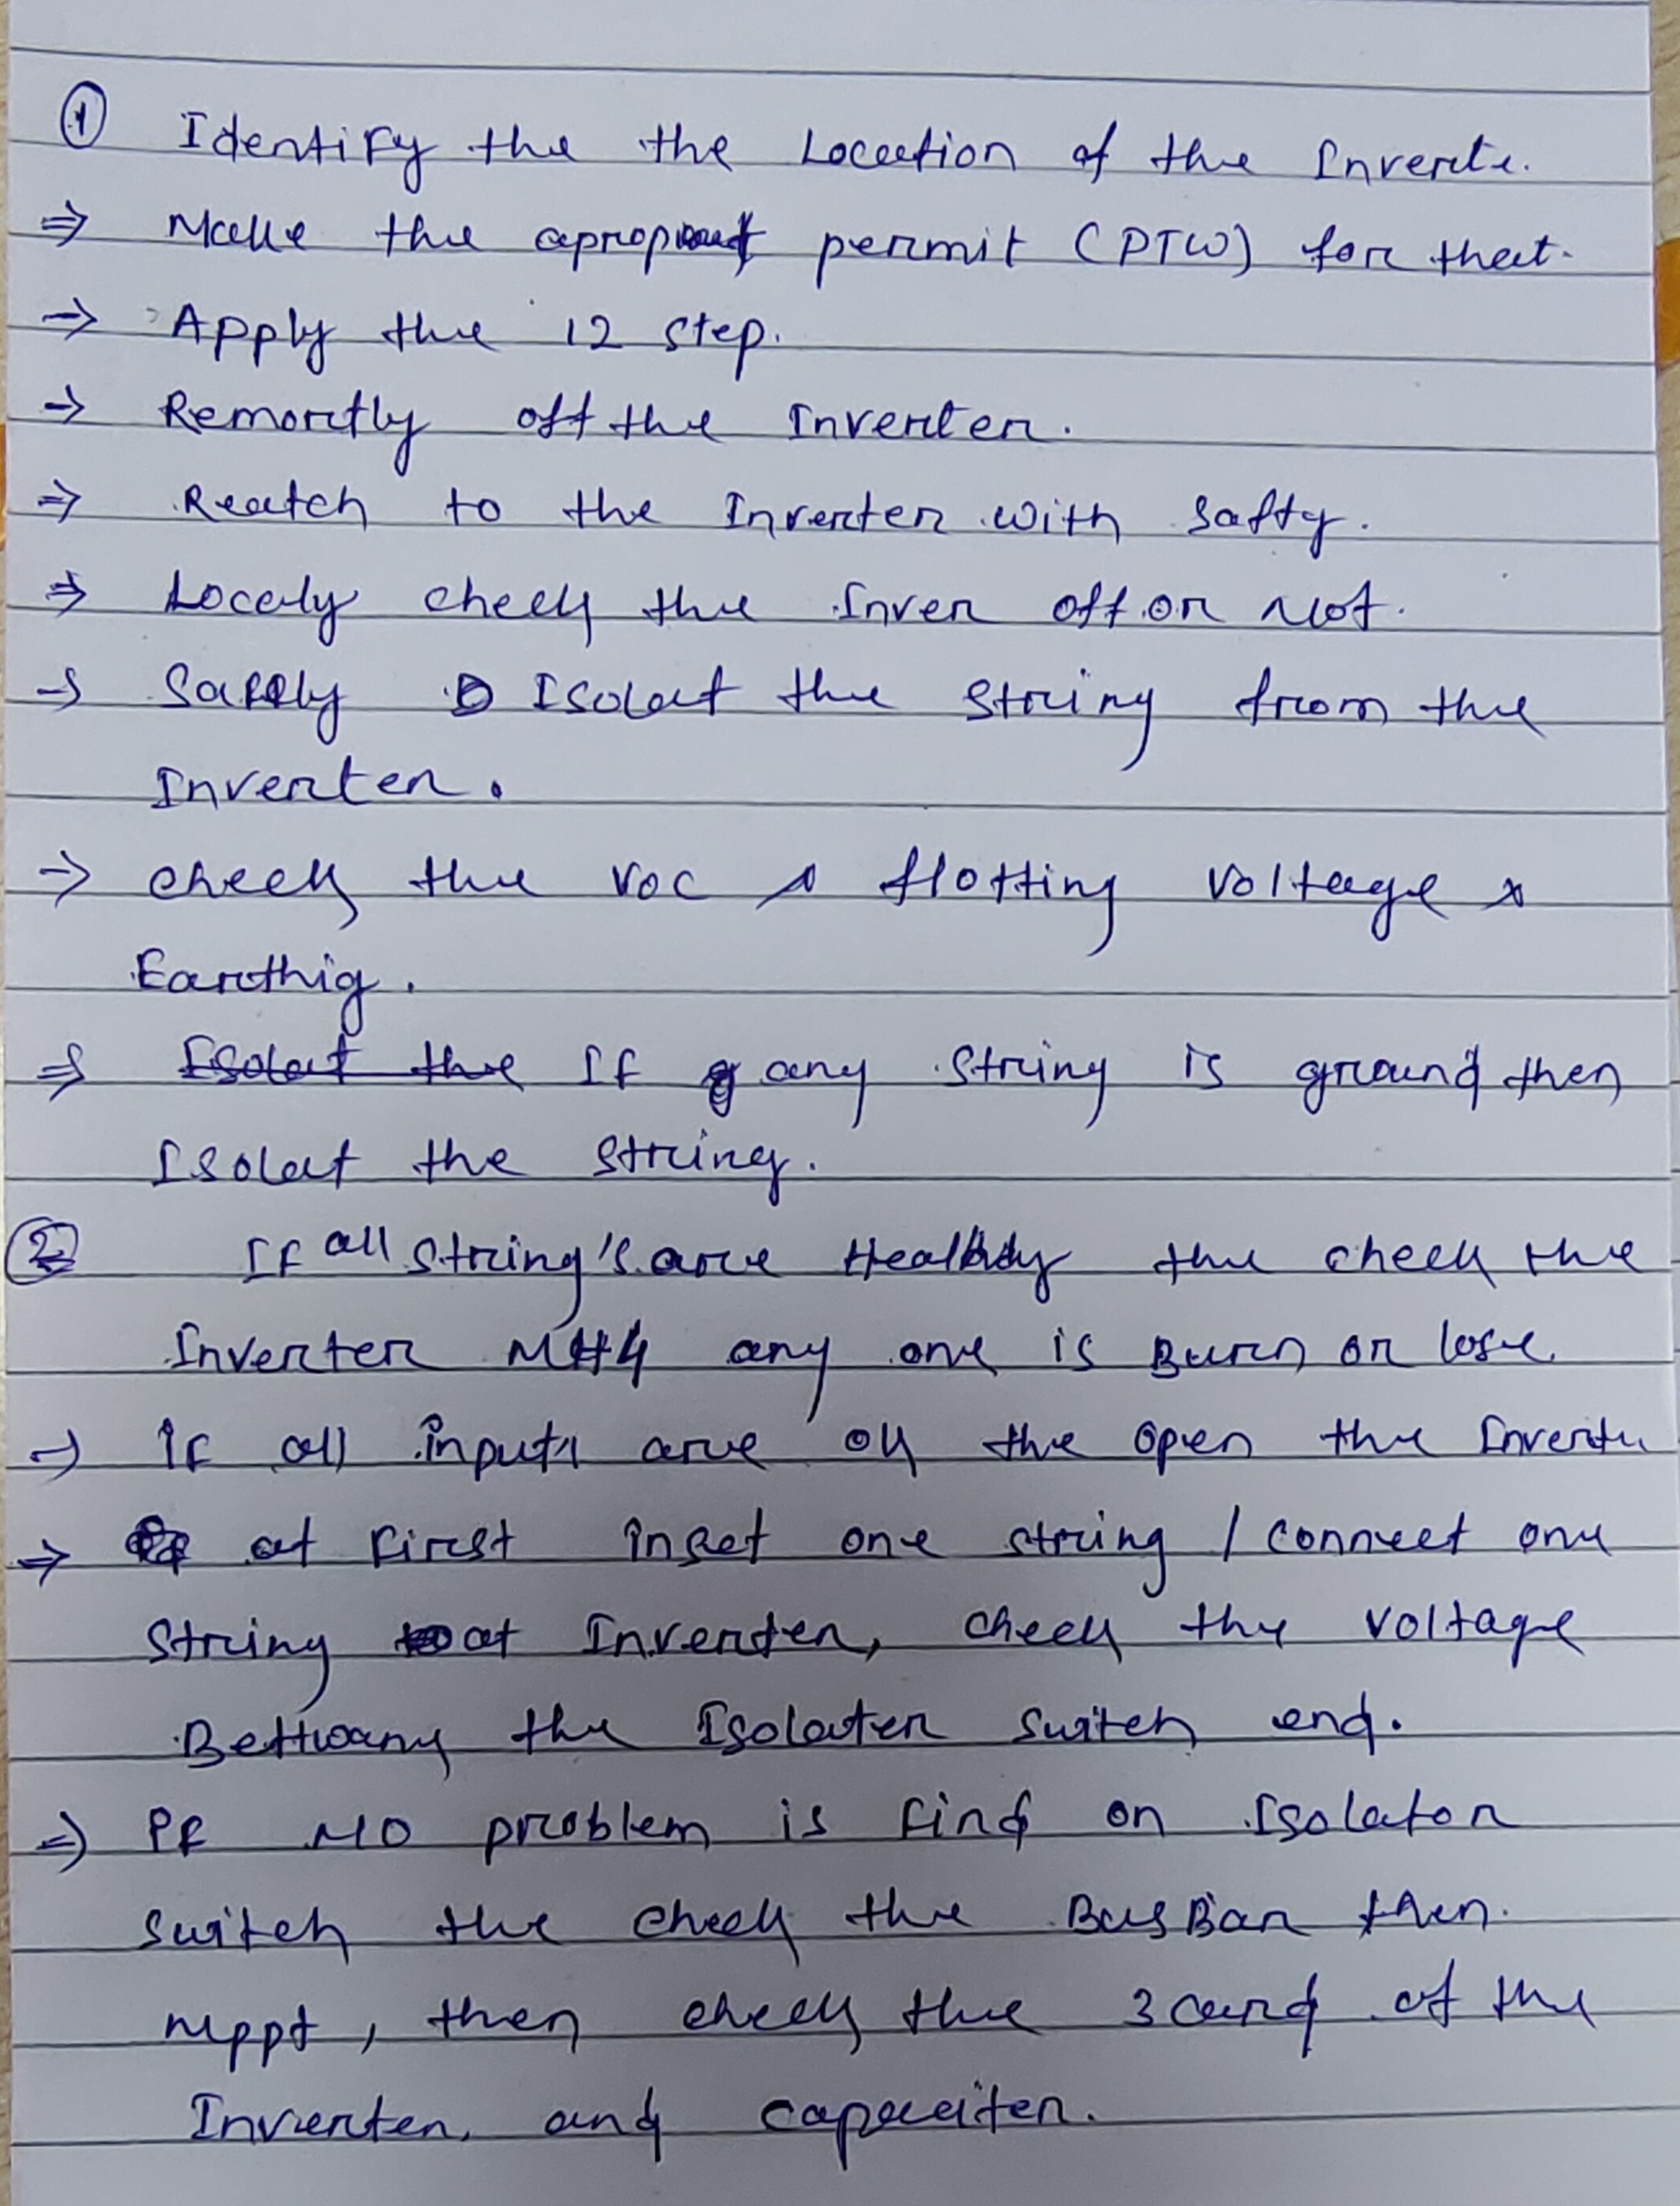 ① Identify the the Location of the Inverte.
⇒ Make the apropriat permit (PTW) for that.
→ Apply the 12 step.
→ Remortly off the Inverter.
⇒ Reatch to the Inverter with Safty.
⇒ Localy check the Inver off or Not.
→ Safely Isolat the String from the
Inverter.
→ check the VOC & flotting Voltage &
Earthig.
⇒ Isolat the If any String is ground then
Isolat the String.
② If all String's are Healthy the check the
Inverter MH4 any one is Burn or lose
→ If all inputs are ok the open the Inverter
⇒ at first inset one string / connect one
String at Inverter, check the Voltage
Bettwany the Isolater Switch end.
⇒ If NO problem is find on Isolator
Switch the check the BusBar then.
mppt, then check the 3 card of the
Inverter, and capaciter.